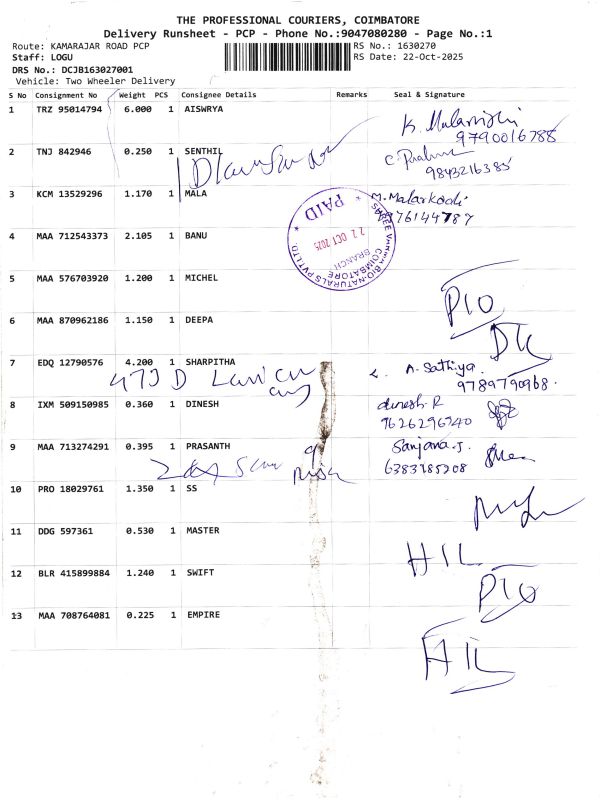 THE PROFESSIONAL COURIERS, COIMBATORE
Delivery Runsheet - PCP - Phone No.:9047080280 - Page No.:1
Route: KAMARAJAR ROAD PCP RS No.: 1630270
Staff: LOGU RS Date: 22-Oct-2025
DRS No.: DCJB163027001
Vehicle: Two Wheeler Delivery
S No Consignment No Weight PCS Consignee Details Remarks Seal & Signature
1 TRZ 95014794 6.000 1 AISWRYA
9790016788
2 TNJ 842946 0.250 1 SENTHIL
9843216385
3 KCM 13529296 1.170 1 MALA M. Malarkodi
PAID
22 OCT 2025
BRANCH
COIMBATORE
4 MAA 712543373 2.105 1 BANU
5 MAA 576703920 1.200 1 MICHEL
6 MAA 870962186 1.150 1 DEEPA
7 EDQ 12790576 4.200 1 SHARPITHA A. Sathiya
9789790968.
8 IXM 509150985 0.360 1 DINESH dinesh. R
9626296240
9 MAA 713274291 0.395 1 PRASANTH Sanjana.J.
6383785208
10 PRO 18029761 1.350 1 SS
11 DDG 597361 0.530 1 MASTER
HIL
12 BLR 415899884 1.240 1 SWIFT
13 MAA 708764081 0.225 1 EMPIRE
HIL